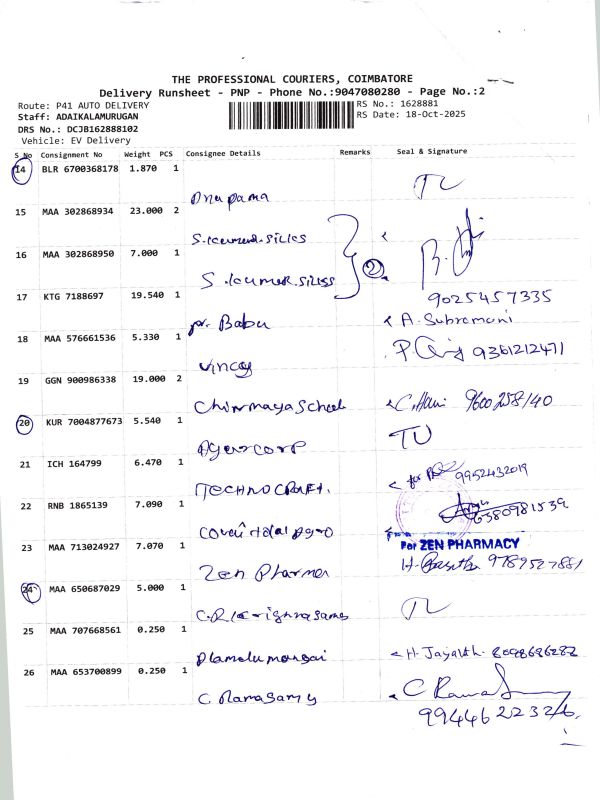 THE PROFESSIONAL COURIERS, COIMBATORE
Delivery Runsheet - PNP - Phone No.:9047080280 - Page No.:2
Route: P41 AUTO DELIVERY
RS No.: 1628881
Staff: ADAIKALAMURUGAN
RS Date: 18-Oct-2025
DRS No.: DCJB162888102
Vehicle: EV Delivery
S No Consignment No Weight PCS Consignee Details Remarks Seal & Signature
14 BLR 6700368178 1.870 1
Anupama
15 MAA 302868934 23.000 2
S.kumar.silks
16 MAA 302868950 7.000 1
S.kumar.silks
2
17 KTG 7188697 19.540 1
9025457335
pr. Babu
A. Subramani
18 MAA 576661536 5.330 1
9361212471
19 GGN 900986338 19.000 2
Chinmaya School
C. Hari 9600258140
20 KUR 7004877673 5.540 1
21 ICH 164799 6.470 1
TECHNOCRAFT.
9952432019
22 RNB 1865139 7.090 1
6380981539
23 MAA 713024927 7.070 1
For ZEN PHARMACY
Zen Pharma
9789527881
24 MAA 650687029 5.000 1
C.R.krishnasamy
25 MAA 707668561 0.250 1
H. Jayanth. 8098696282
26 MAA 653700899 0.250 1
C. Ramasamy
C Rama
9944622326